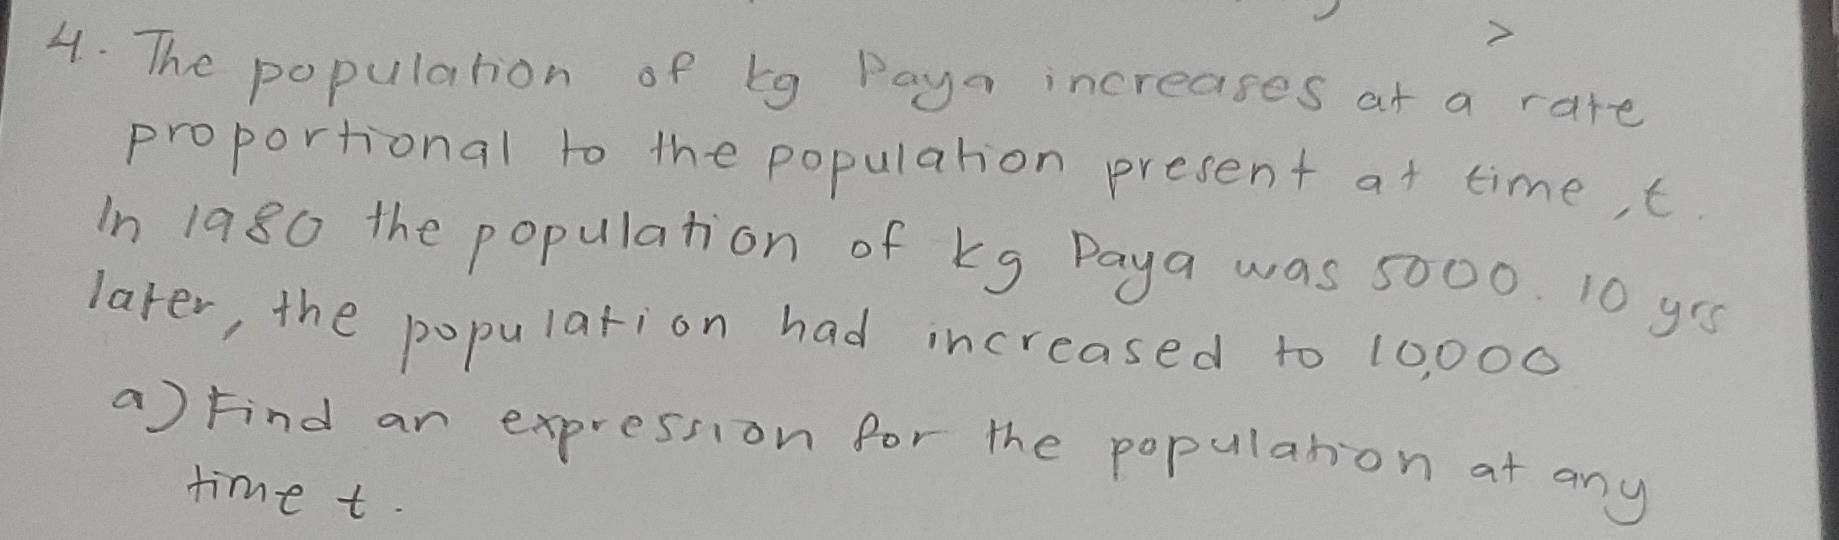 4. The population of kg Paya increases at a rate
proportional to the population present at time, t.
In 1980 the population of kg Paya was 5000. 10 yrs
later, the population had increased to 10,000
a) Find an expression for the population at any
time t.